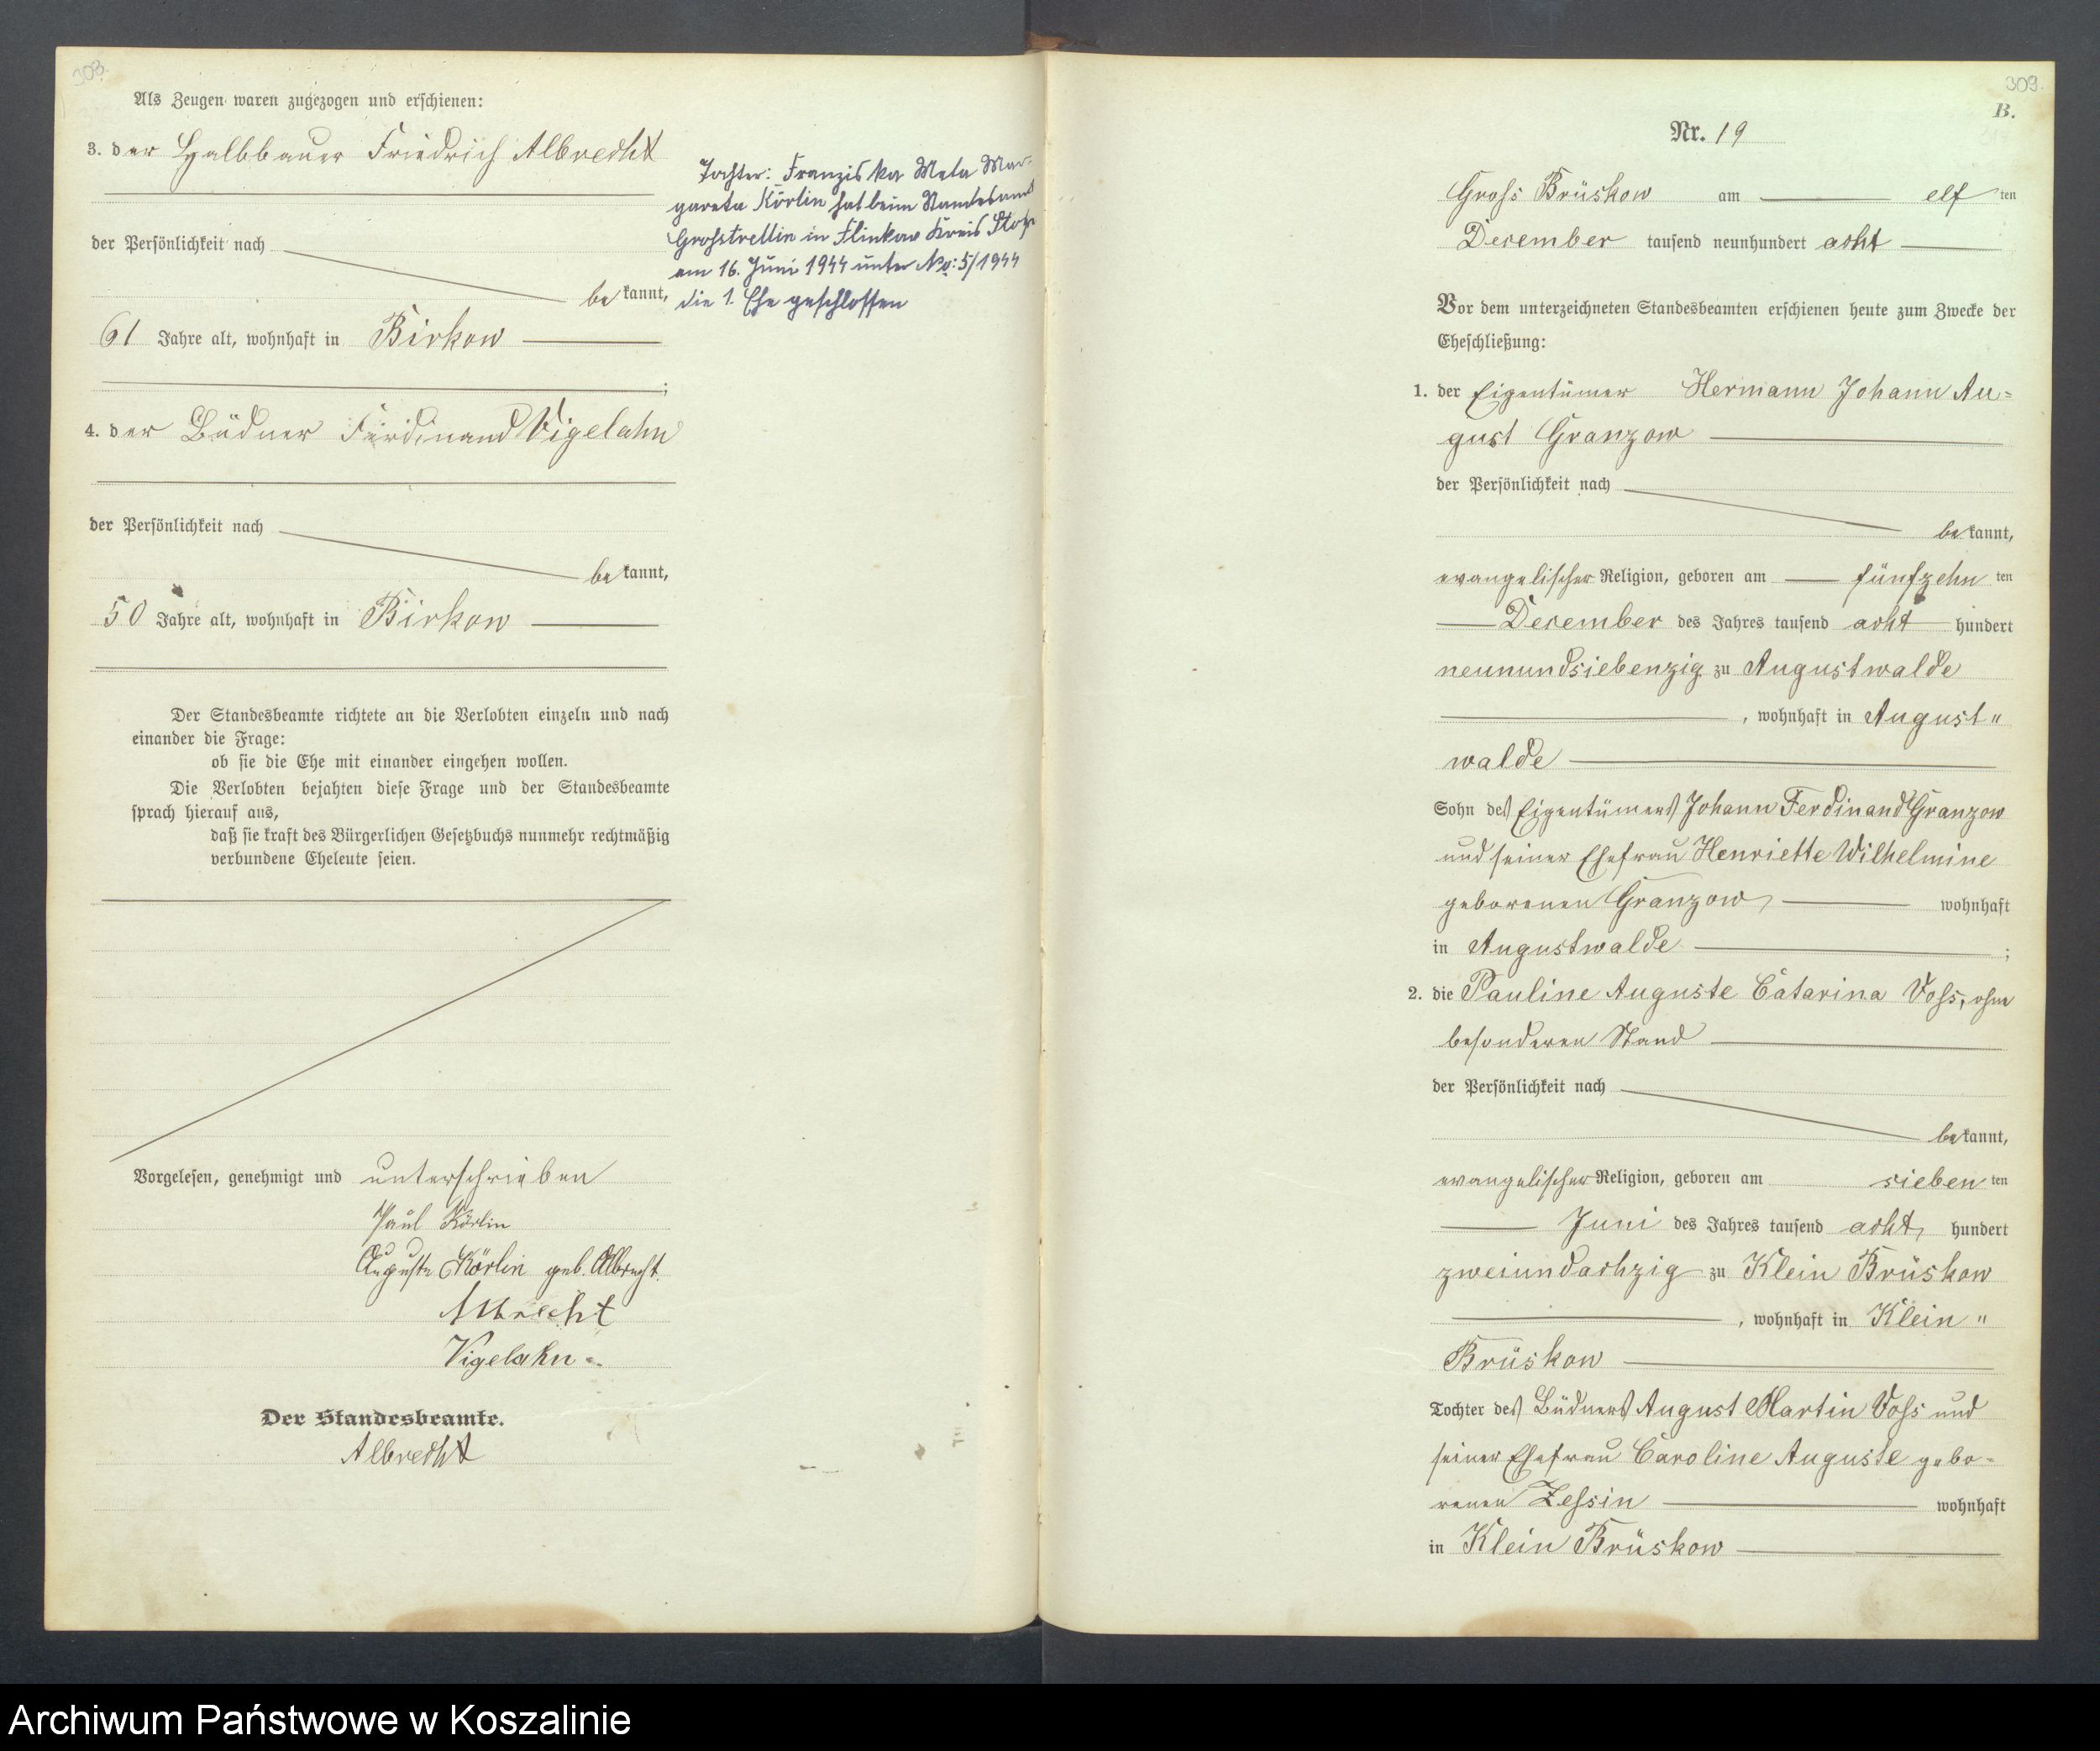 303.
Als Zeugen waren zugezogen und erschienen:
3. der Halbbauer Friedrich Albrecht
der Persönlichkeit nach
bekannt,
61 Jahre alt, wohnhaft in Birkow
;
4. der Büdner Ferdinand Vigelahn
der Persönlichkeit nach
bekannt,
50 Jahre alt, wohnhaft in Birkow
Der Standesbeamte richtete an die Verlobten einzeln und nach
einander die Frage:
ob sie die Ehe mit einander eingehen wollen.
Die Verlobten bejahten diese Frage und der Standesbeamte
sprach hierauf aus,
daß sie kraft des Bürgerlichen Gesetzbuchs nunmehr rechtmäßig
verbundene Eheleute seien.
Vorgelesen, genehmigt und unterschrieben
Paul Körlin
Auguste Körlin geb. Albrecht.
Albrecht
Vigelahn
Der Standesbeamte.
Albrecht
Tochter: Franziska Meta Mar-
gareta Körlin hat beim Standesamt
Großstrellin in Flinkow Kreis Stolp
am 16. Juni 1944 unter No: 5/1944
die 1. Ehe geschlossen
309.
B.
Nr. 19
Gross Brüskow am elf ten
Dezember tausend neunhundert acht
Vor dem unterzeichneten Standesbeamten erschienen heute zum Zwecke der
Eheschließung:
1. der Eigentümer Hermann Johann Au=
gust Granzow
der Persönlichkeit nach
bekannt,
evangelischer Religion, geboren am fünfzehn ten
Dezember des Jahres tausend acht hundert
neunundsiebenzig zu Augustwalde
, wohnhaft in August"
walde
Sohn des Eigentümers Johann Ferdinand Granzow
und seiner Ehefrau Henriette Wilhelmine
geborenen Granzow, wohnhaft
in Augustwalde ;
2. die Pauline Auguste Catarina Voß, ohne
besonderen Stand
der Persönlichkeit nach
bekannt,
evangelischer Religion, geboren am sieben ten
Juni des Jahres tausend acht hundert
zweiundachzig zu Klein Brüskow
, wohnhaft in Klein "
Brüskow
Tochter des Büdners August Martin Voß und
seiner Ehefrau Caroline Auguste gebo-
renen Zessin wohnhaft
in Klein Brüskow
Archiwum Państwowe w Koszalinie